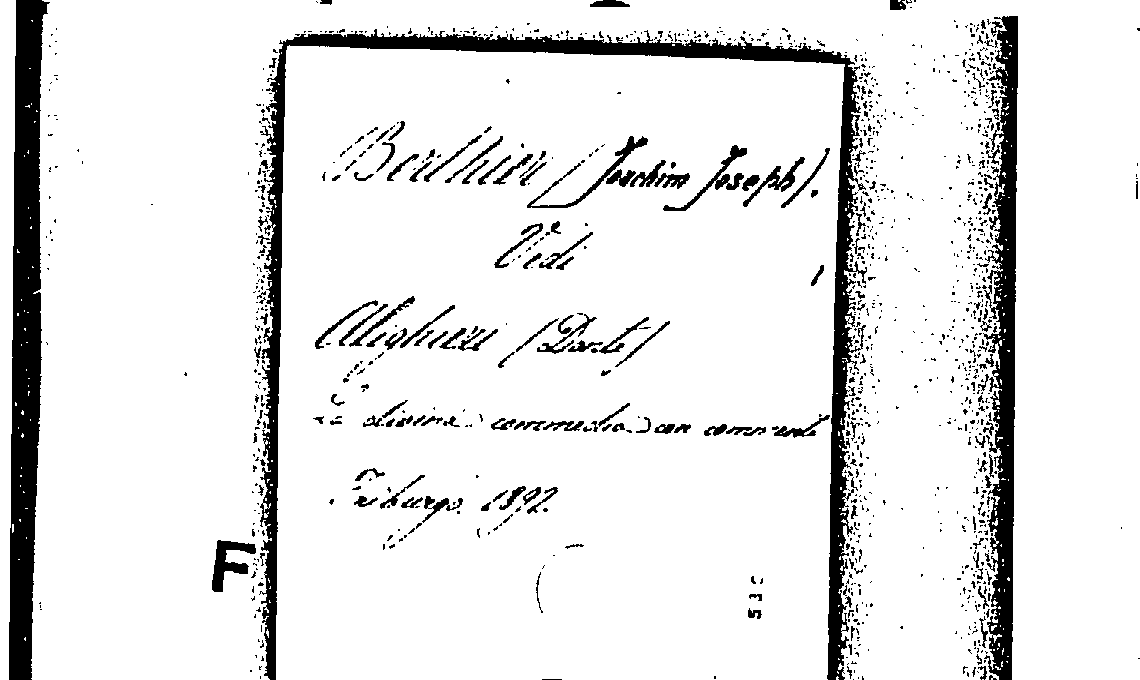 Berthier (Joachim Joseph).
Vedi
Alighieri (Dante)
La divina commedia con commenti
Friburgo 1892.
F